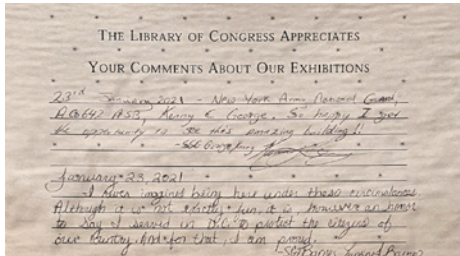 THE LIBRARY OF CONGRESS APPRECIATES
YOUR COMMENTS ABOUT OUR EXHIBITIONS
23rd January 2021 - New York Army National Guard,
Kenny George. So happy I got
the opportunity to see this amazing building!!
January 23, 2021
I never imagined being here under these circumstances
Although it is not exactly fun, it is, however an honor
to say I served in D.C. to protect the citizens of
our country. And for that, I am proud.